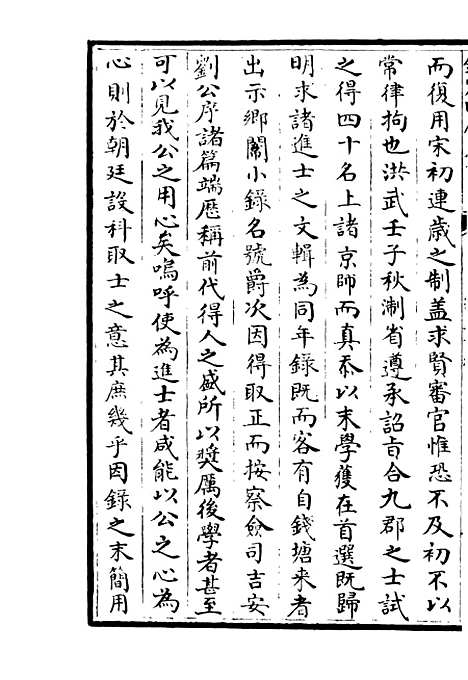 而復用宋初連歲之制盖求賢審官惟恐不及初不以
常律拘也洪武壬子秋淛省遵承詔旨合九郡之士試
之得四十名上諸京師而真忝以末學獲在首選既歸
明求諸進士之文輯為同年錄既而客有自錢塘来者
出示鄉闈小錄名號爵次因得取正而按察僉司吉安
劉公序諸篇端歷稱前代得人之盛所以奨厲後學者甚至
可以見我公之用心矣嗚呼使為進士者咸能以公之心為
心則於朝廷設科取士之意其庶幾乎因錄之末簡用